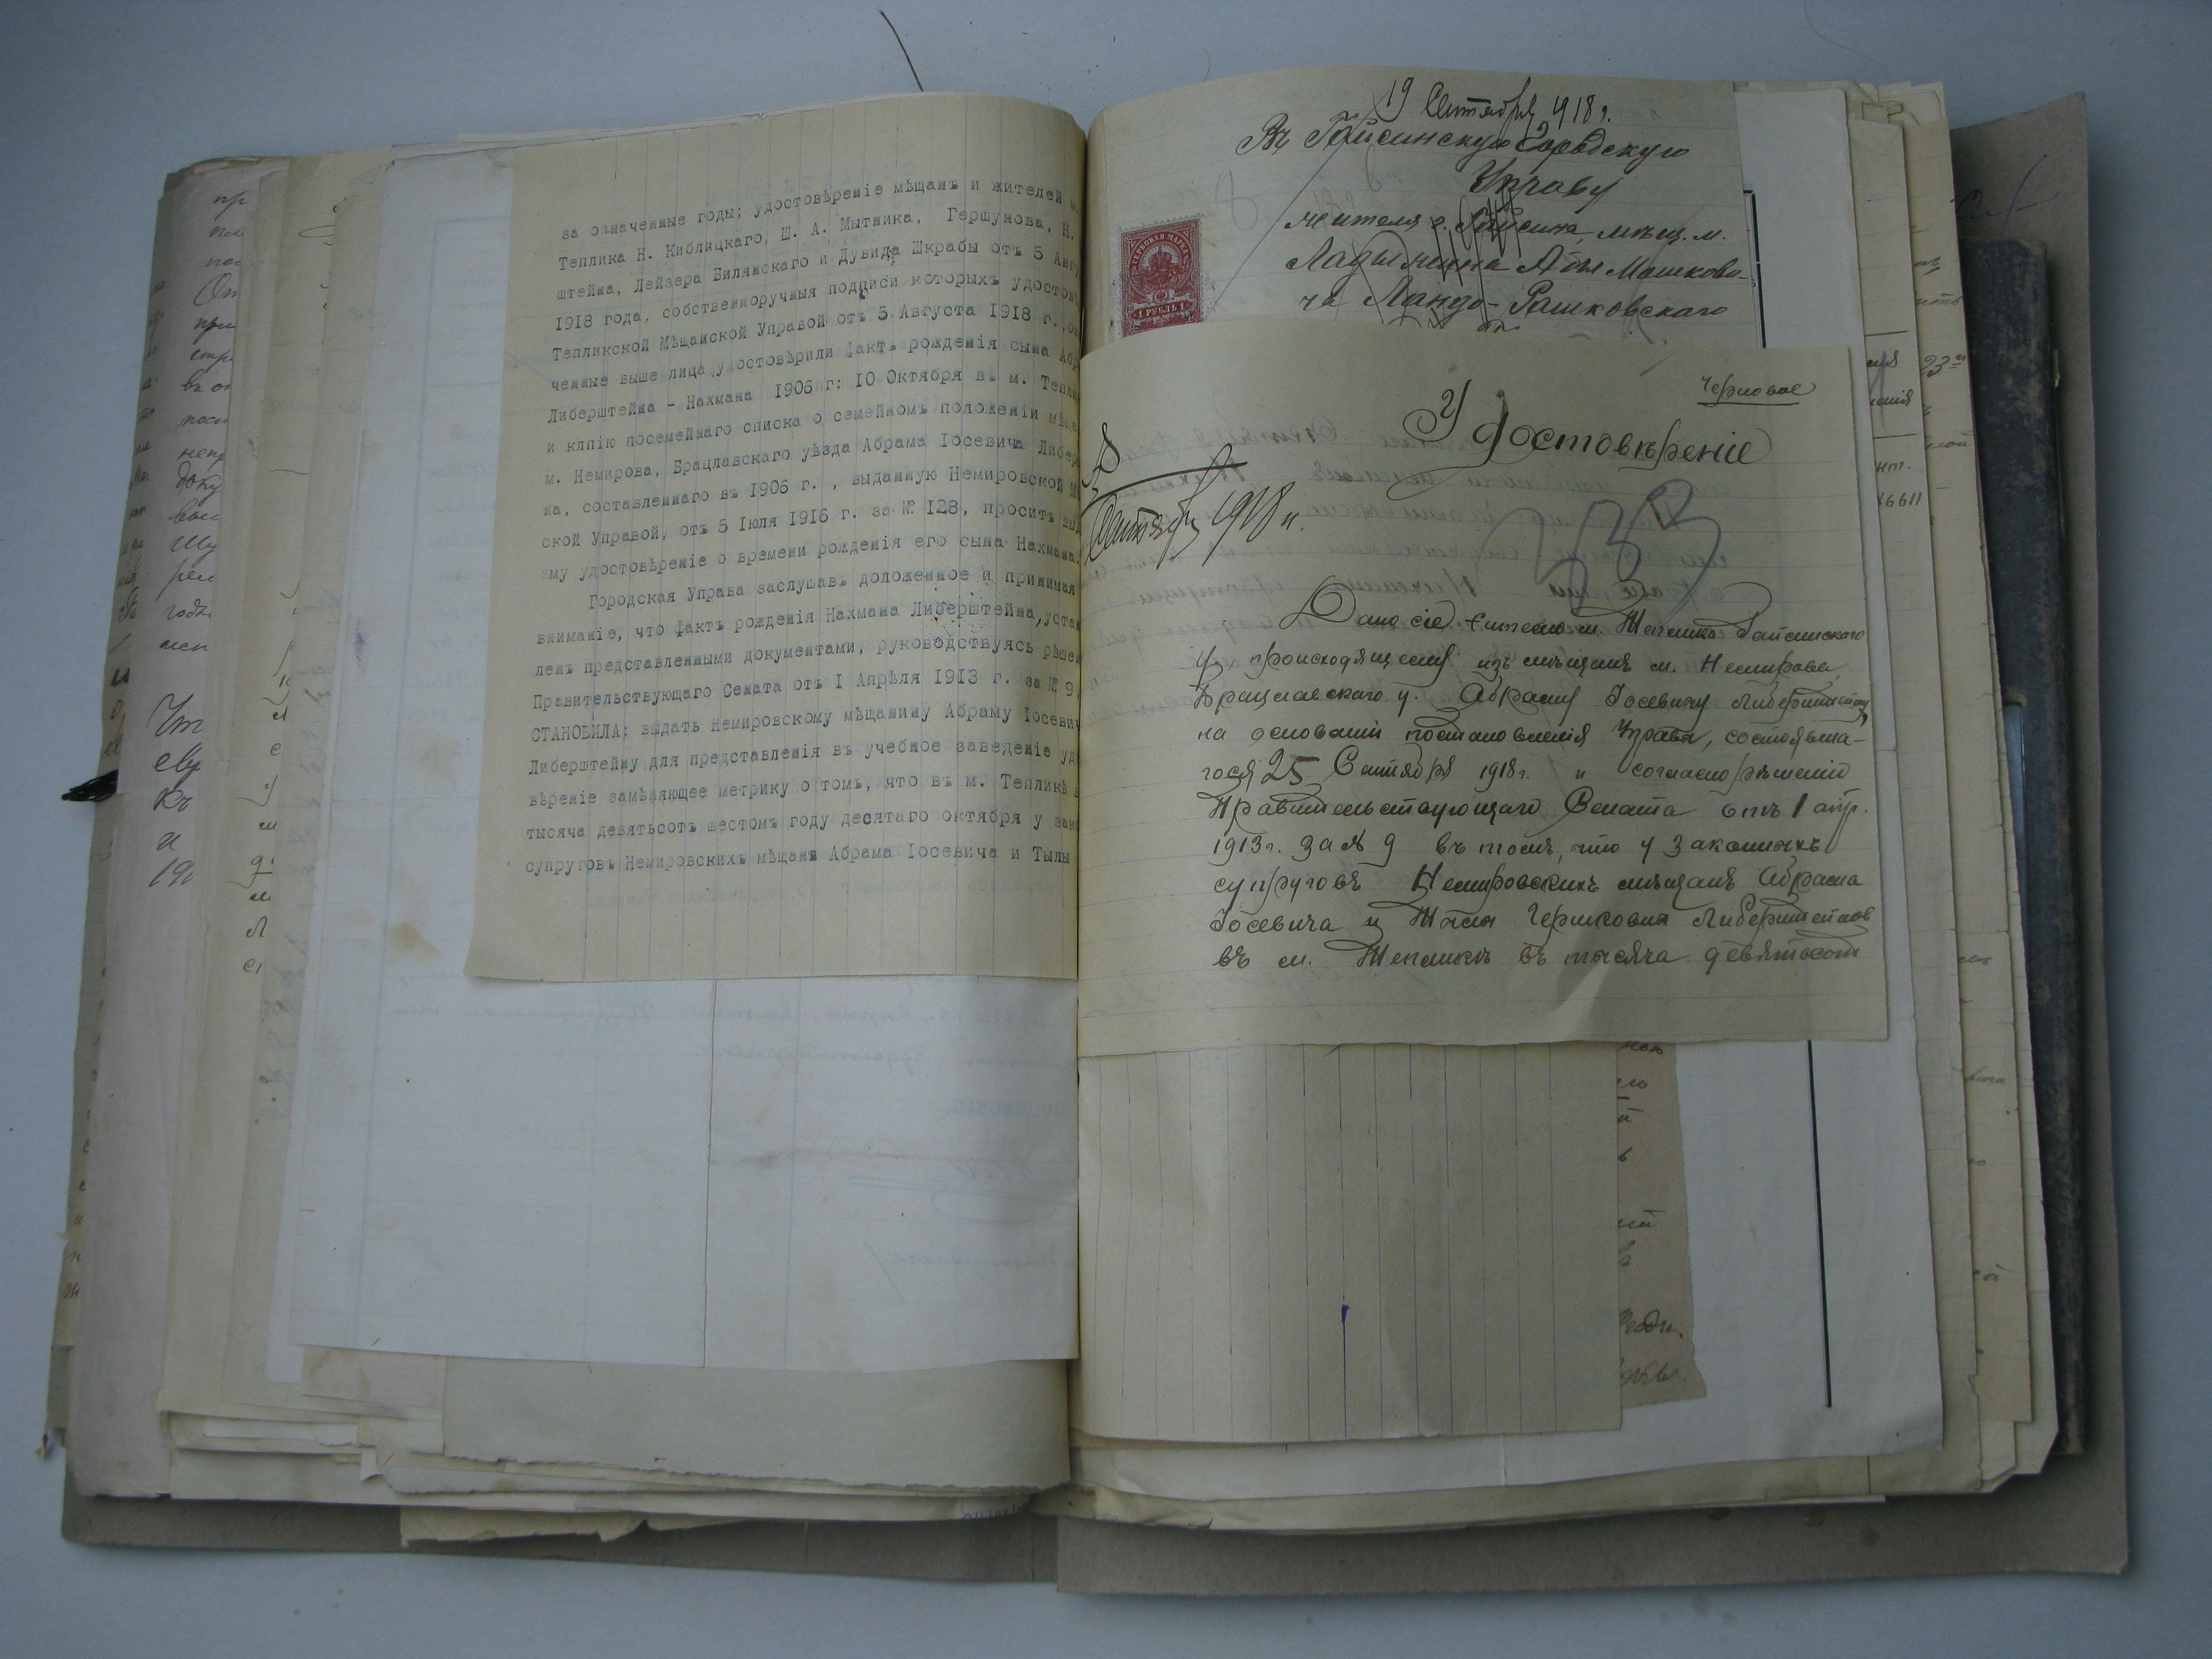 за означенные годы; удостовѣреніе мѣщанъ и жителей м.
Теплика Н. Киблицкаго, Ш. А. Мытника, Гершунова, Н.
штейна, Лейзера Билянскаго и Дувида Шкрабы отъ 5 Авгу
1918 года, собственноручныя подписи которыхъ удостов
Тепликской Мѣщанской Управой отъ 5 Августа 1918 г.,
ченные выше лица удостовѣрили фактъ рожденія сына Абр
Либерштейна - Нахмана 1906 г: 10 Октября въ м. Тепли
и клпію посемейнаго списка о семейномъ положеніи мѣща
м. Немирова, Брацлавскаго уѣзда Абрама Іосевича Либер
на, составленнаго въ 1906 г. , выданную Немировской М
ской Управой, отъ 5 Іюля 1916 г. за № 128, проситъ выд
ему удостовѣреніе о времени рожденія его сына Нахмана.
Городская Управа заслушавъ доложенное и принимая
вниманіе, что фактъ рожденія Нахмана Либерштейна, устан
ленъ представленными документами, руководствуясь рѣшен
Правительствующаго Сената отъ I Апрѣля 1913 г. за № 9,
СТАНОВИЛА: выдать Немировскому мѣщанину Абраму Іосевич
Либерштейну для представленія въ учебное заведеніе удо
вѣреніе замѣняющее метрику о томъ, что въ м. Тепликѣ в
тысяча девятьсотъ шестомъ году десятаго октября у зако
супруговъ Немировскихъ мѣщанъ Абрама Іосевича и Тылы
19 Сентября 1918 г.
Въ Гайсинскую Городскую
Управу
жителя г. Гайсина, мѣщ. м.
Ладыжина Абы Мошкови-
ча Ландо-Рашковскаго
ГЕРБОВАЯ МАРКА
1 РУБЛЬ 1
Черновое
Удостовѣреніе
Сентября 1918 г.
733
Дано сіе жителю м. Теплика Гайсинскаго
у. происходящему изъ мѣщанъ м. Немирова,
Брацлавскаго у. Абраму Іосевичу Либерштейну
на основаніи постановленія Управы, состоявша-
гося 25 Сентября 1918 г. и согласно рѣшенію
Правительствующаго Сената отъ 1 апр.
1913 г. за № 9 въ томъ, что у законныхъ
супруговъ Немировскихъ мѣщанъ Абрама
Іосевича и Тылы Гершковны Либерштейнов
въ м. Тепликѣ въ тысяча девятьсот
16611